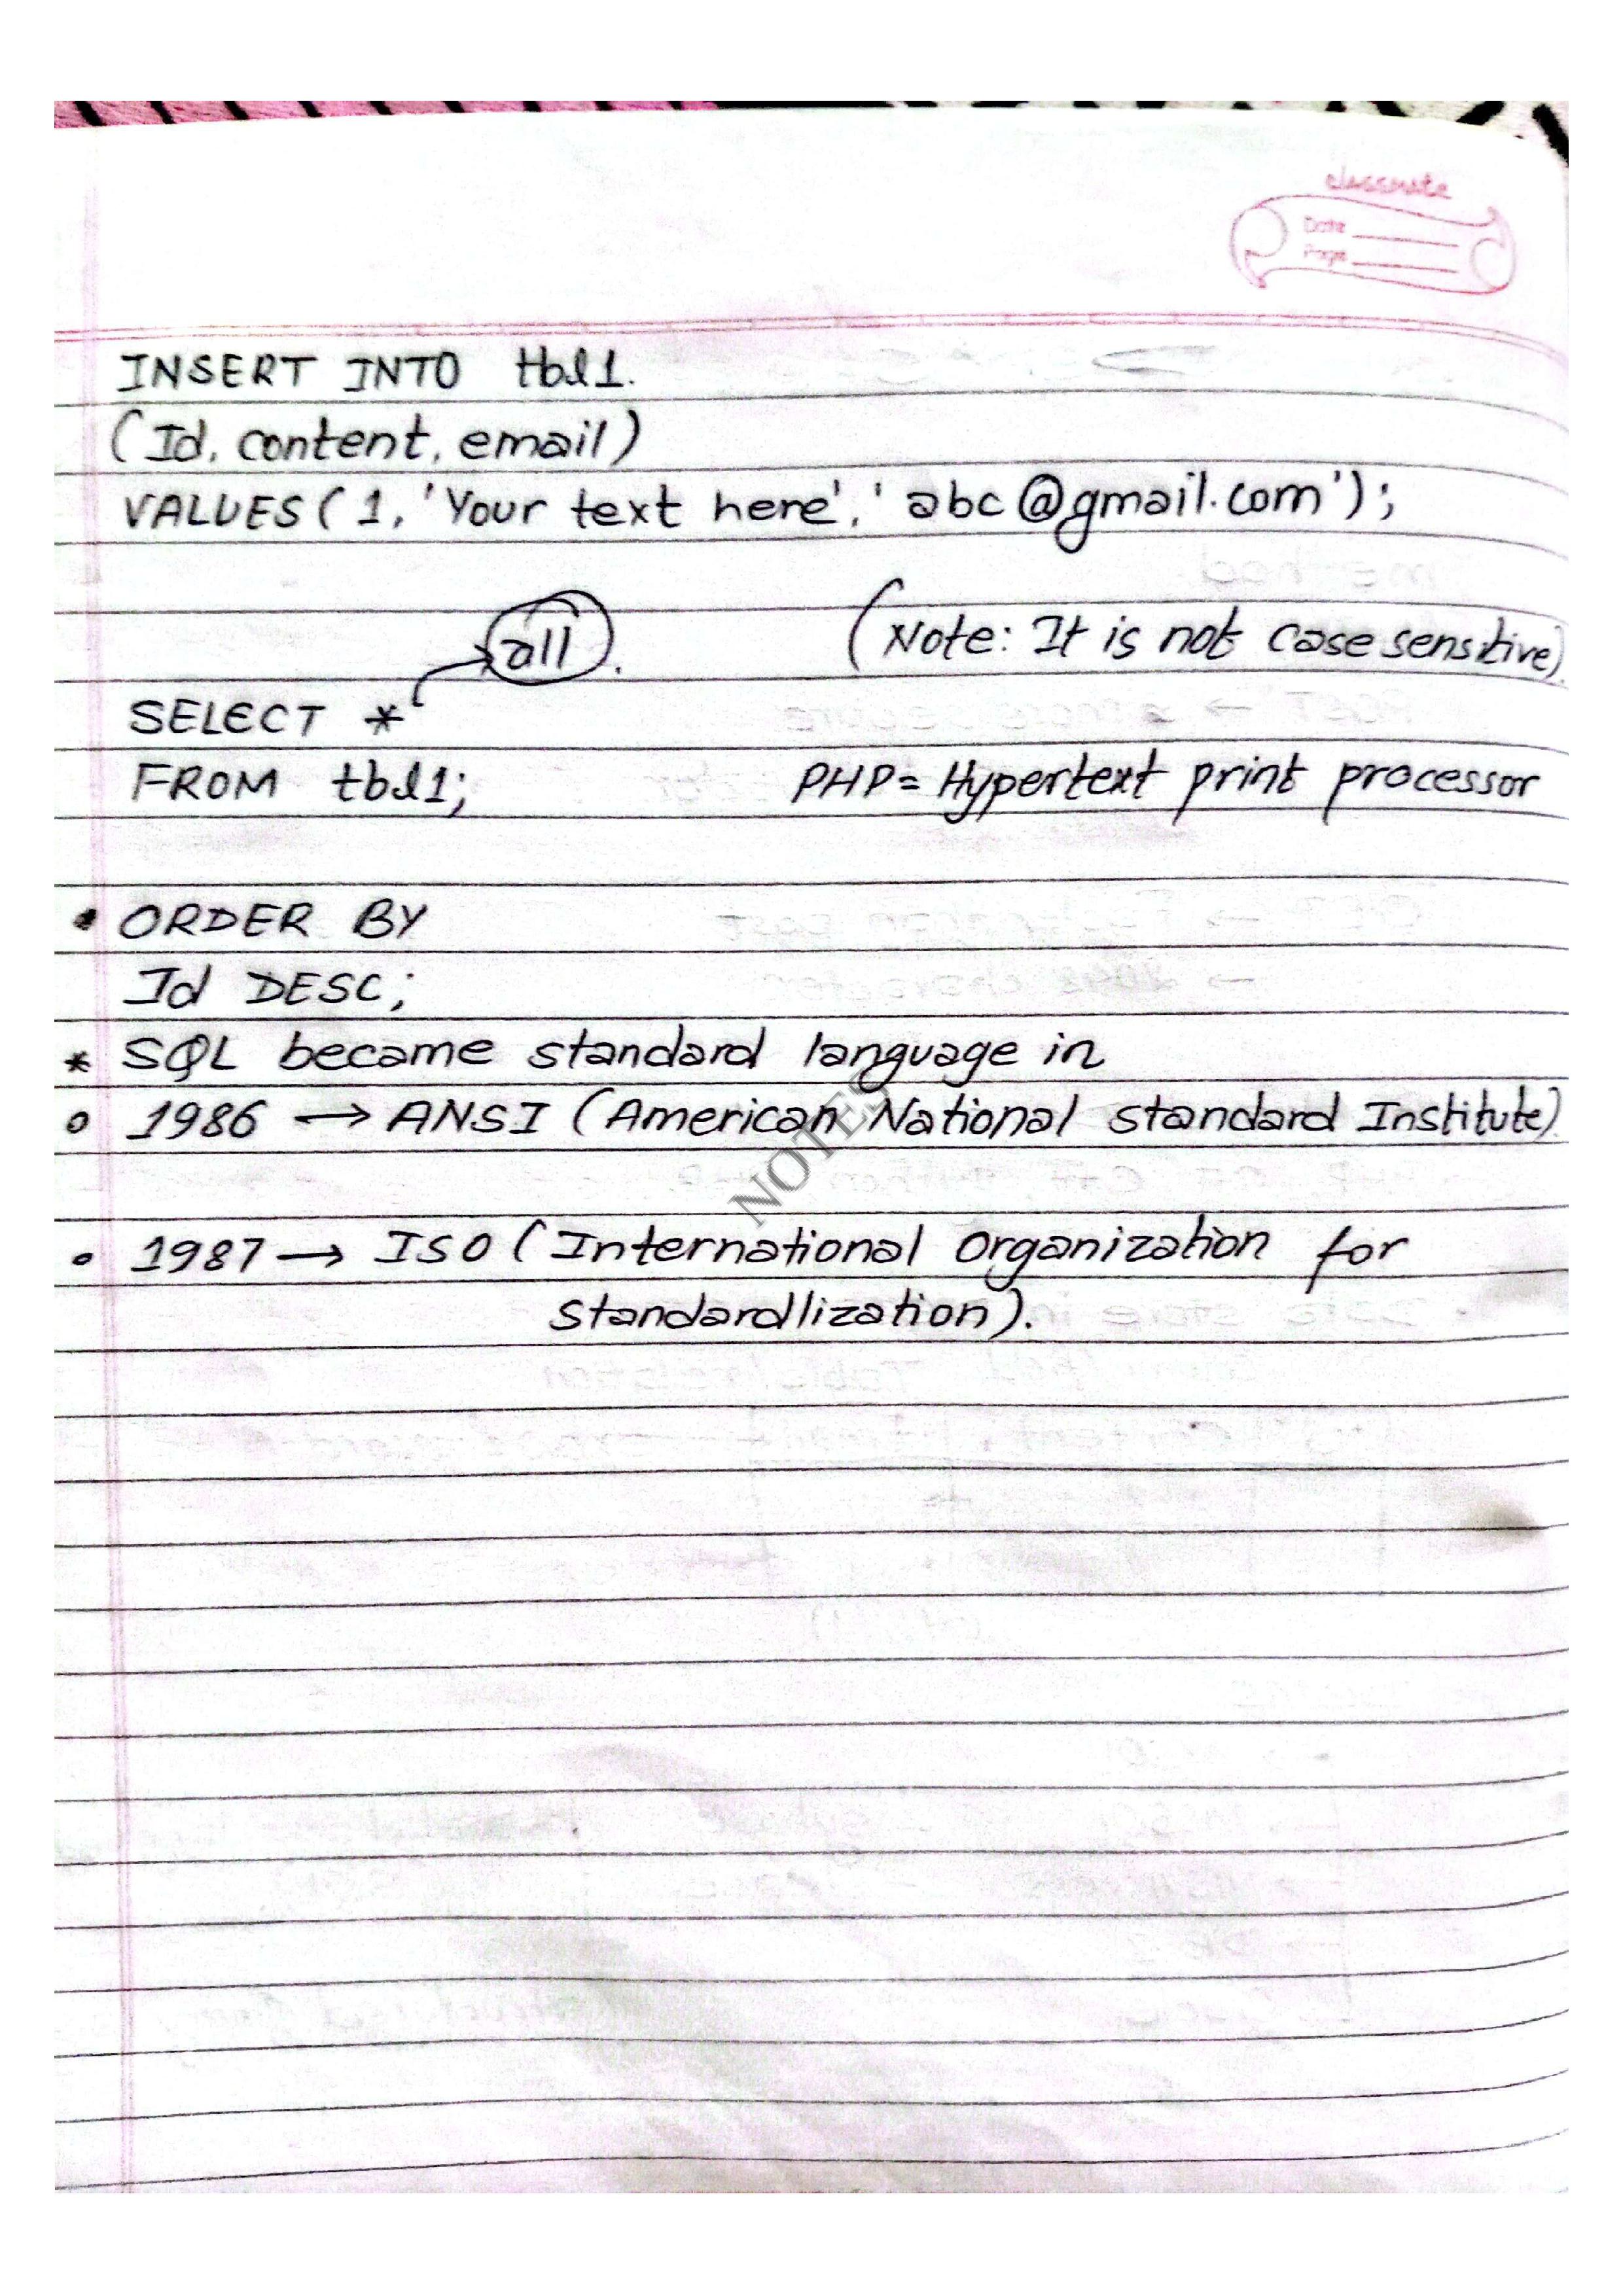 classmate
Date
Page
INSERT INTO tbl1.
(Id, content, email)
VALUES ( 1, 'Your text here', 'abc@gmail.com');
all.
(Note: It is not case sensitive)
SELECT *
FROM tbl1;
PHP = Hypertext print processor
* ORDER BY
Id DESC;
* SQL became standard language in
o 1986 → ANSI (American National standard Institute)
NOTES
o 1987 → ISO (International Organization for
standardlization).